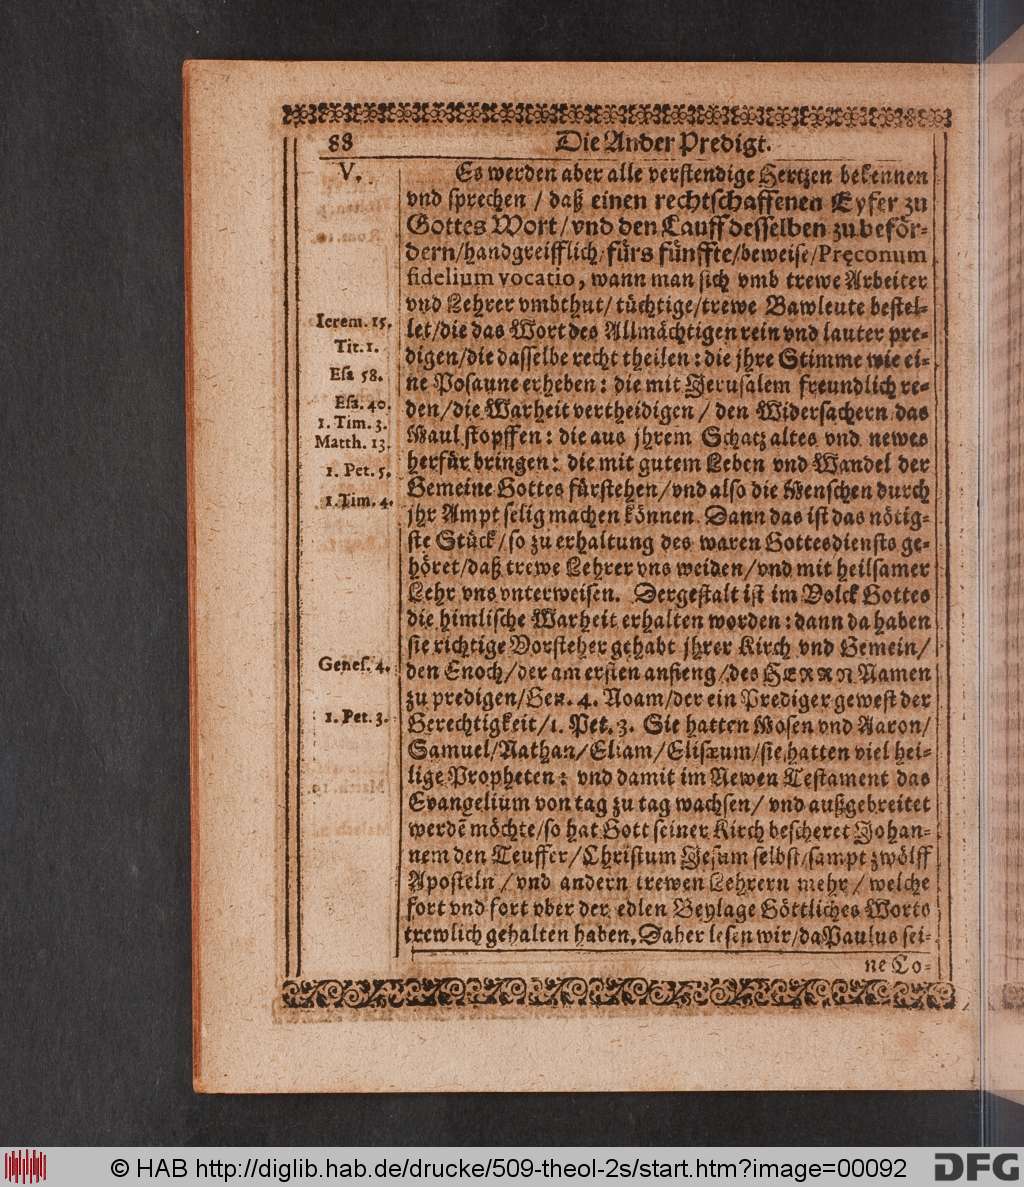 88
Die Ander Predigt.
V.
Es werden aber alle verstendige Hertzen bekennen
vnd sprechen / daß einen rechtschaffenen Eyfer zu
Gottes Wort / vnd den Lauff desselben zu beför-
dern/handgreifflich/fürs fünffte/beweise/Pręconum
fidelium vocatio, wann man sich vmb trewe Arbeiter
vnd Lehrer vmbthut/ tüchtige/trewe Bawleute bestel-
Ierem. 15.
let/die das Wort des Allmächtigen rein vnd lauter pre-
Tit. 1.
digen/die dasselbe recht theilen : die jhre Stimme wie ei-
Esa 58.
ne Posaune erheben : die mit Jerusalem freundlich re-
Esa. 40.
den/die Warheit vertheidigen / den Widersachern das
1. Tim. 3.
Matth. 13.
Maul stopffen : die aus jhrem Schatz altes vnd newes
herfür bringen : die mit gutem Leben vnd Wandel der
1. Pet. 5.
Gemeine Gottes fürstehen/vnd also die Menschen durch
1. Tim. 4.
jhr Ampt selig machen können. Dann das ist das nötig-
ste Stück/so zu erhaltung des waren Gottesdiensts ge-
höret/daß trewe Lehrer vns weiden/vnd mit heilsamer
Lehr vns vnterweisen. Dergestalt ist im Volck Gottes
die himlische Warheit erhalten worden : dann da haben
sie richtige Vorsteher gehabt jhrer Kirch vnd Gemein/
Genes. 4.
den Enoch/der am ersten anfieng/des HERRN Namen
zu predigen/Gen. 4. Noam/der ein Prediger gewest der
1. Pet. 3.
Gerechtigkeit/1. Pet. 3. Sie hatten Mosen vnd Aaron/
Samuel/Nathan/Eliam/Elisæum/sie hatten viel hei-
lige Propheten : vnd damit im Newen Testament das
Evangelium von tag zu tag wachsen/ vnd außgebreitet
werdẽ möchte/so hat Gott seiner Kirch bescheret Johan-
nem den Teuffer/Christum Jesum selbst/sampt zwölff
Aposteln/vnd andern trewen Lehrern mehr/welche
fort vnd fort vber der edlen Beylage Göttliches Worts
trewlich gehalten haben. Daher lesen wir/da Paulus sei-
ne Co-
© HAB http://diglib.hab.de/drucke/509-theol-2s/start.htm?image=00092
DFG